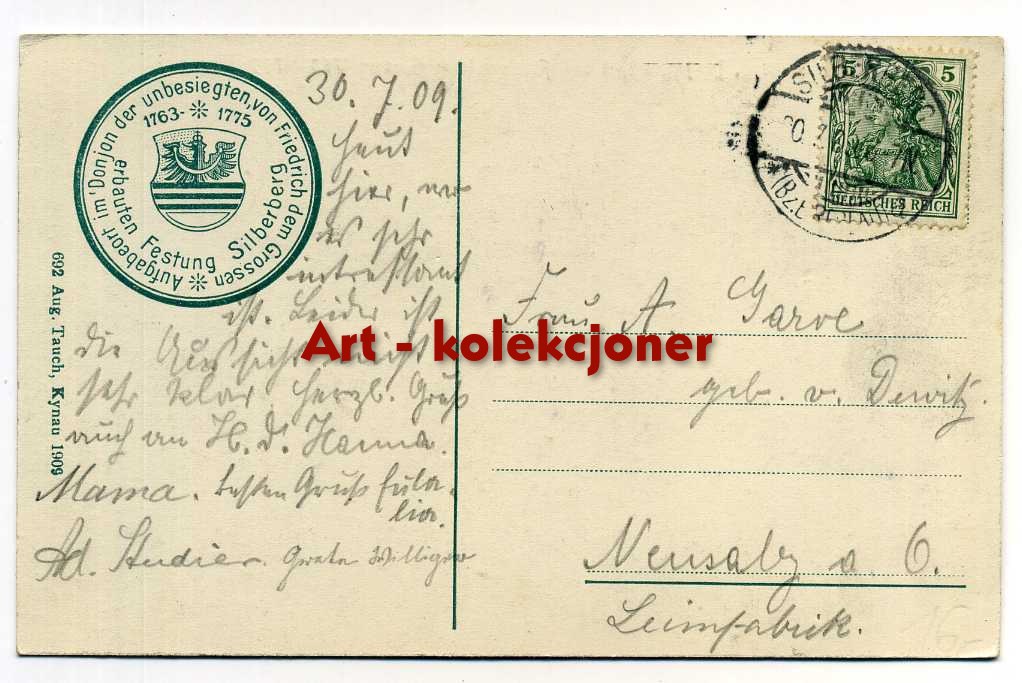 Aufgabeort im 'Donjon der unbesiegten, von Friedrich dem Grossen
1763-✻ 1775
erbauten Festung Silberberg
692 Aug. Tauch, Kynau 1909
30. 7. 09.
Heut
hier, wo
es sehr
intressant
ist. Leider ist
die Aussicht nicht
sehr klar herzl. Gruß
auch an H. d. Hanna.
Mama. besten Gruß Eula-
lia.
Ad. Studier. Grete Williger
5 5
DEUTSCHES REICH
SILBERBERG
Frau A. Garve
geb. v. Dewitz.
Neusalz a O.
Leimfabrik.
16-
Art - kolekcjoner